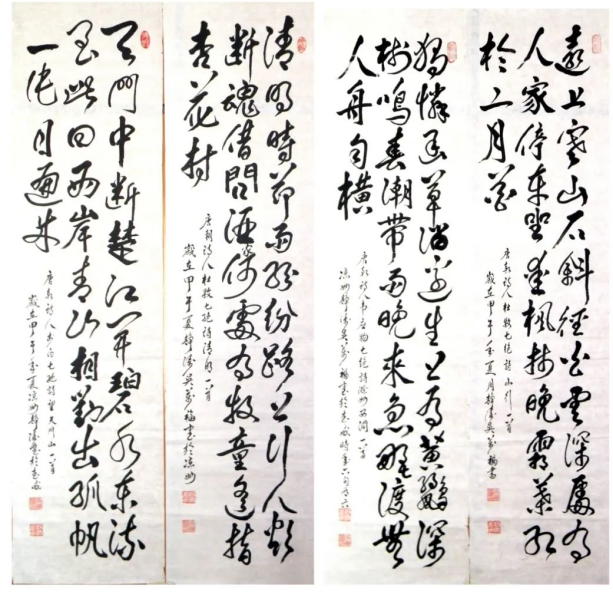 遠上寒山石斜徑白雲深處有
人家停車坐愛楓林晚霜葉紅
於二月花
唐朝詩人杜牧七絕詩山行一首
歲在甲午年夏月靜濤吳萬福書
獨憐幽草澗邊生上有黃鸝深
樹鳴春潮帶雨晚來急野渡無
人舟自橫
唐朝詩人韋應物七絕詩滁州西澗一首
涼州靜濤吳萬福書於 時年六旬有六
清明時節雨紛紛路上行人欲
斷魂借問酒家何處有牧童遙指
杏花村
唐朝詩人杜牧七絕詩清明一首
歲在甲午夏靜濤吳萬福書於涼州
天門中斷楚江開碧水東流
至此回兩岸青山相對出孤帆
一片日邊來
唐朝詩人李白七絕詩望天門山一首
歲在甲午年夏涼州靜濤書於